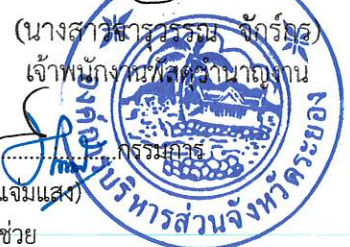 (นางสาวชารุวรรณ จักร์กร)
เจ้าพนักงานพัสดุชำนาญงาน
กรรมการ
แจ่มแสง)
ช่วย
องค์การบริหารส่วนจังหวัดระยอง